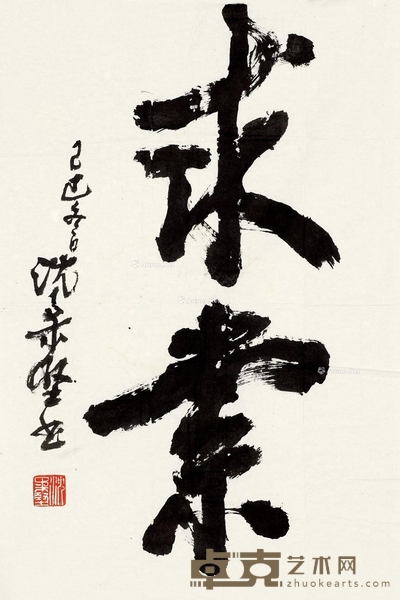 求索
己巳冬日
沈柔坚书
卓克艺术网
zhuokearts.com